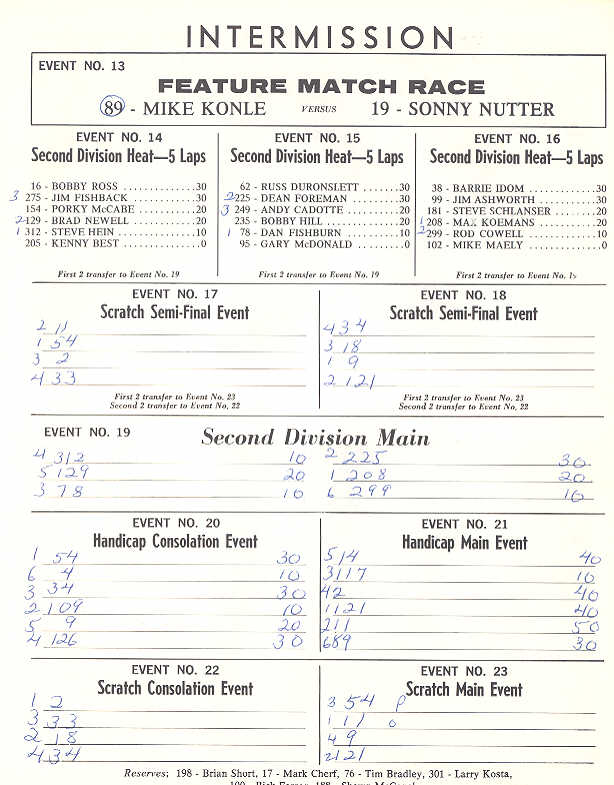 INTERMISSION
EVENT NO. 13
FEATURE MATCH RACE
89 - MIKE KONLE VERSUS 19 - SONNY NUTTER
EVENT NO. 14
Second Division Heat—5 Laps
16 - BOBBY ROSS ............30
3 275 - JIM FISHBACK ............30
154 - PORKY McCABE ............20
2 129 - BRAD NEWELL ............20
1 312 - STEVE HEIN ............10
205 - KENNY BEST ............0
First 2 transfer to Event No. 19
EVENT NO. 15
Second Division Heat—5 Laps
62 - RUSS DURONSLETT .......30
2 225 - DEAN FOREMAN ..........30
3 249 - ANDY CADOTTE ..........20
235 - BOBBY HILL ..........20
1 78 - DAN FISHBURN ..........10
95 - GARY McDONALD ..........0
First 2 transfer to Event No. 19
EVENT NO. 16
Second Division Heat—5 Laps
38 - BARRIE IDOM ............30
99 - JIM ASHWORTH ..........30
181 - STEVE SCHLANSER ........20
1 208 - MAX KOEMANS ..........20
2 299 - ROD COWELL ............10
102 - MIKE MAELY ............0
First 2 transfer to Event No.
EVENT NO. 17
Scratch Semi-Final Event
2 11
1 54
3 2
4 33
First 2 transfer to Event No. 23
Second 2 transfer to Event No. 22
EVENT NO. 18
Scratch Semi-Final Event
4 34
3 18
1 9
2 121
First 2 transfer to Event No. 23
Second 2 transfer to Event No, 22
EVENT NO. 19 Second Division Main
4 312 10 2 225 30
5 129 20 1 208 20
3 78 10 6 299 10
EVENT NO. 20
Handicap Consolation Event
1 54 30
6 4 10
3 34 30
2 109 10
5 9 20
4 126 30
EVENT NO. 21
Handicap Main Event
5 14 40
3 117 10
4 2 40
1 121 40
2 11 50
6 89 30
EVENT NO. 22
Scratch Consolation Event
1 2
3 33
2 18
4 34
EVENT NO. 23
Scratch Main Event
3 54 P
1 11 o
4 9
2 121
Reserves; 198 - Brian Short, 17 - Mark Cherf, 76 - Tim Bradley, 301 - Larry Kosta,